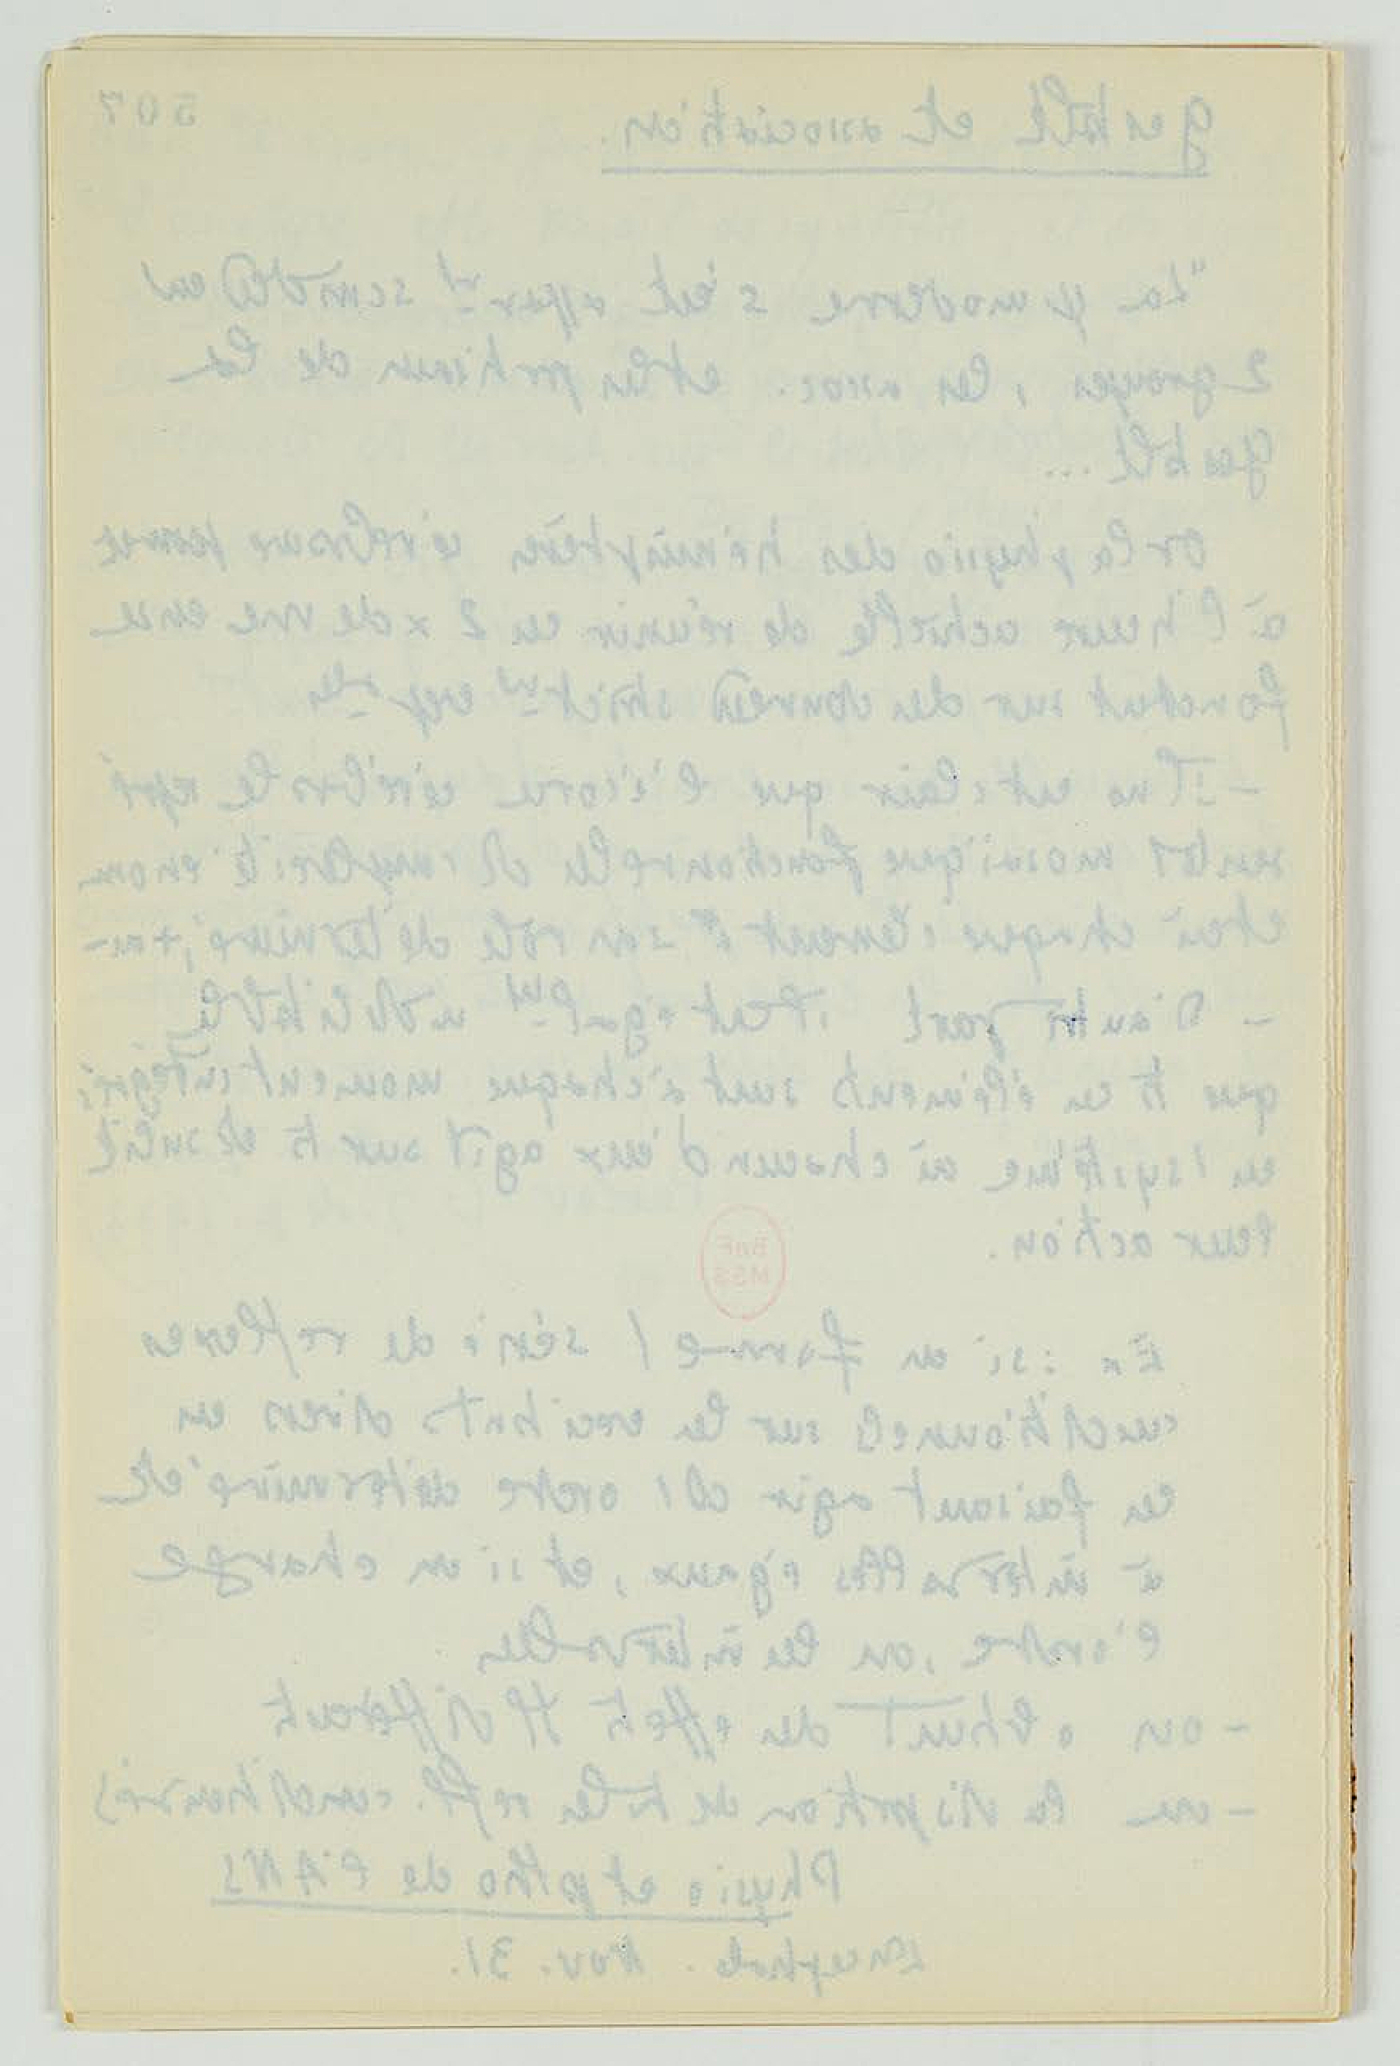 507
gestalt et association.
"La ψ moderne s'est appar^t scindée en
2 groupes, les assoc. et les partisans de la
gestalt ...
Or la physio des hémisphères cérébraux permet
à l'heure actuelle de réunir ces 2 x de vue en se
fondant sur des données strict^nt exp^les
- Il ns est clair que l'écorce cérébrale repré
sente 1 mosaïque fonctionnelle de complexité énorm
et où chaque élément a son rôle déterminé, +
- D'autre part il est égal^mt indubitable
que ts ces éléments sont à chaque moment intégrés
en 1 système où chacun d'eux agit sur ts et subit
leur action.
BnF
MSS
Ex : si on forme 1 série de reflexes
conditionnels sur les excitants divers en
les faisant agir ds 1 ordre déterminé et
à intervalles égaux, et si on change
l'ordre, ou les intervalles
- on obtient des effets tt différents
- ou la disparition de ts les refl. conditionnés
Physio et patho de l'ANS
Encéphale. Nov. 31.